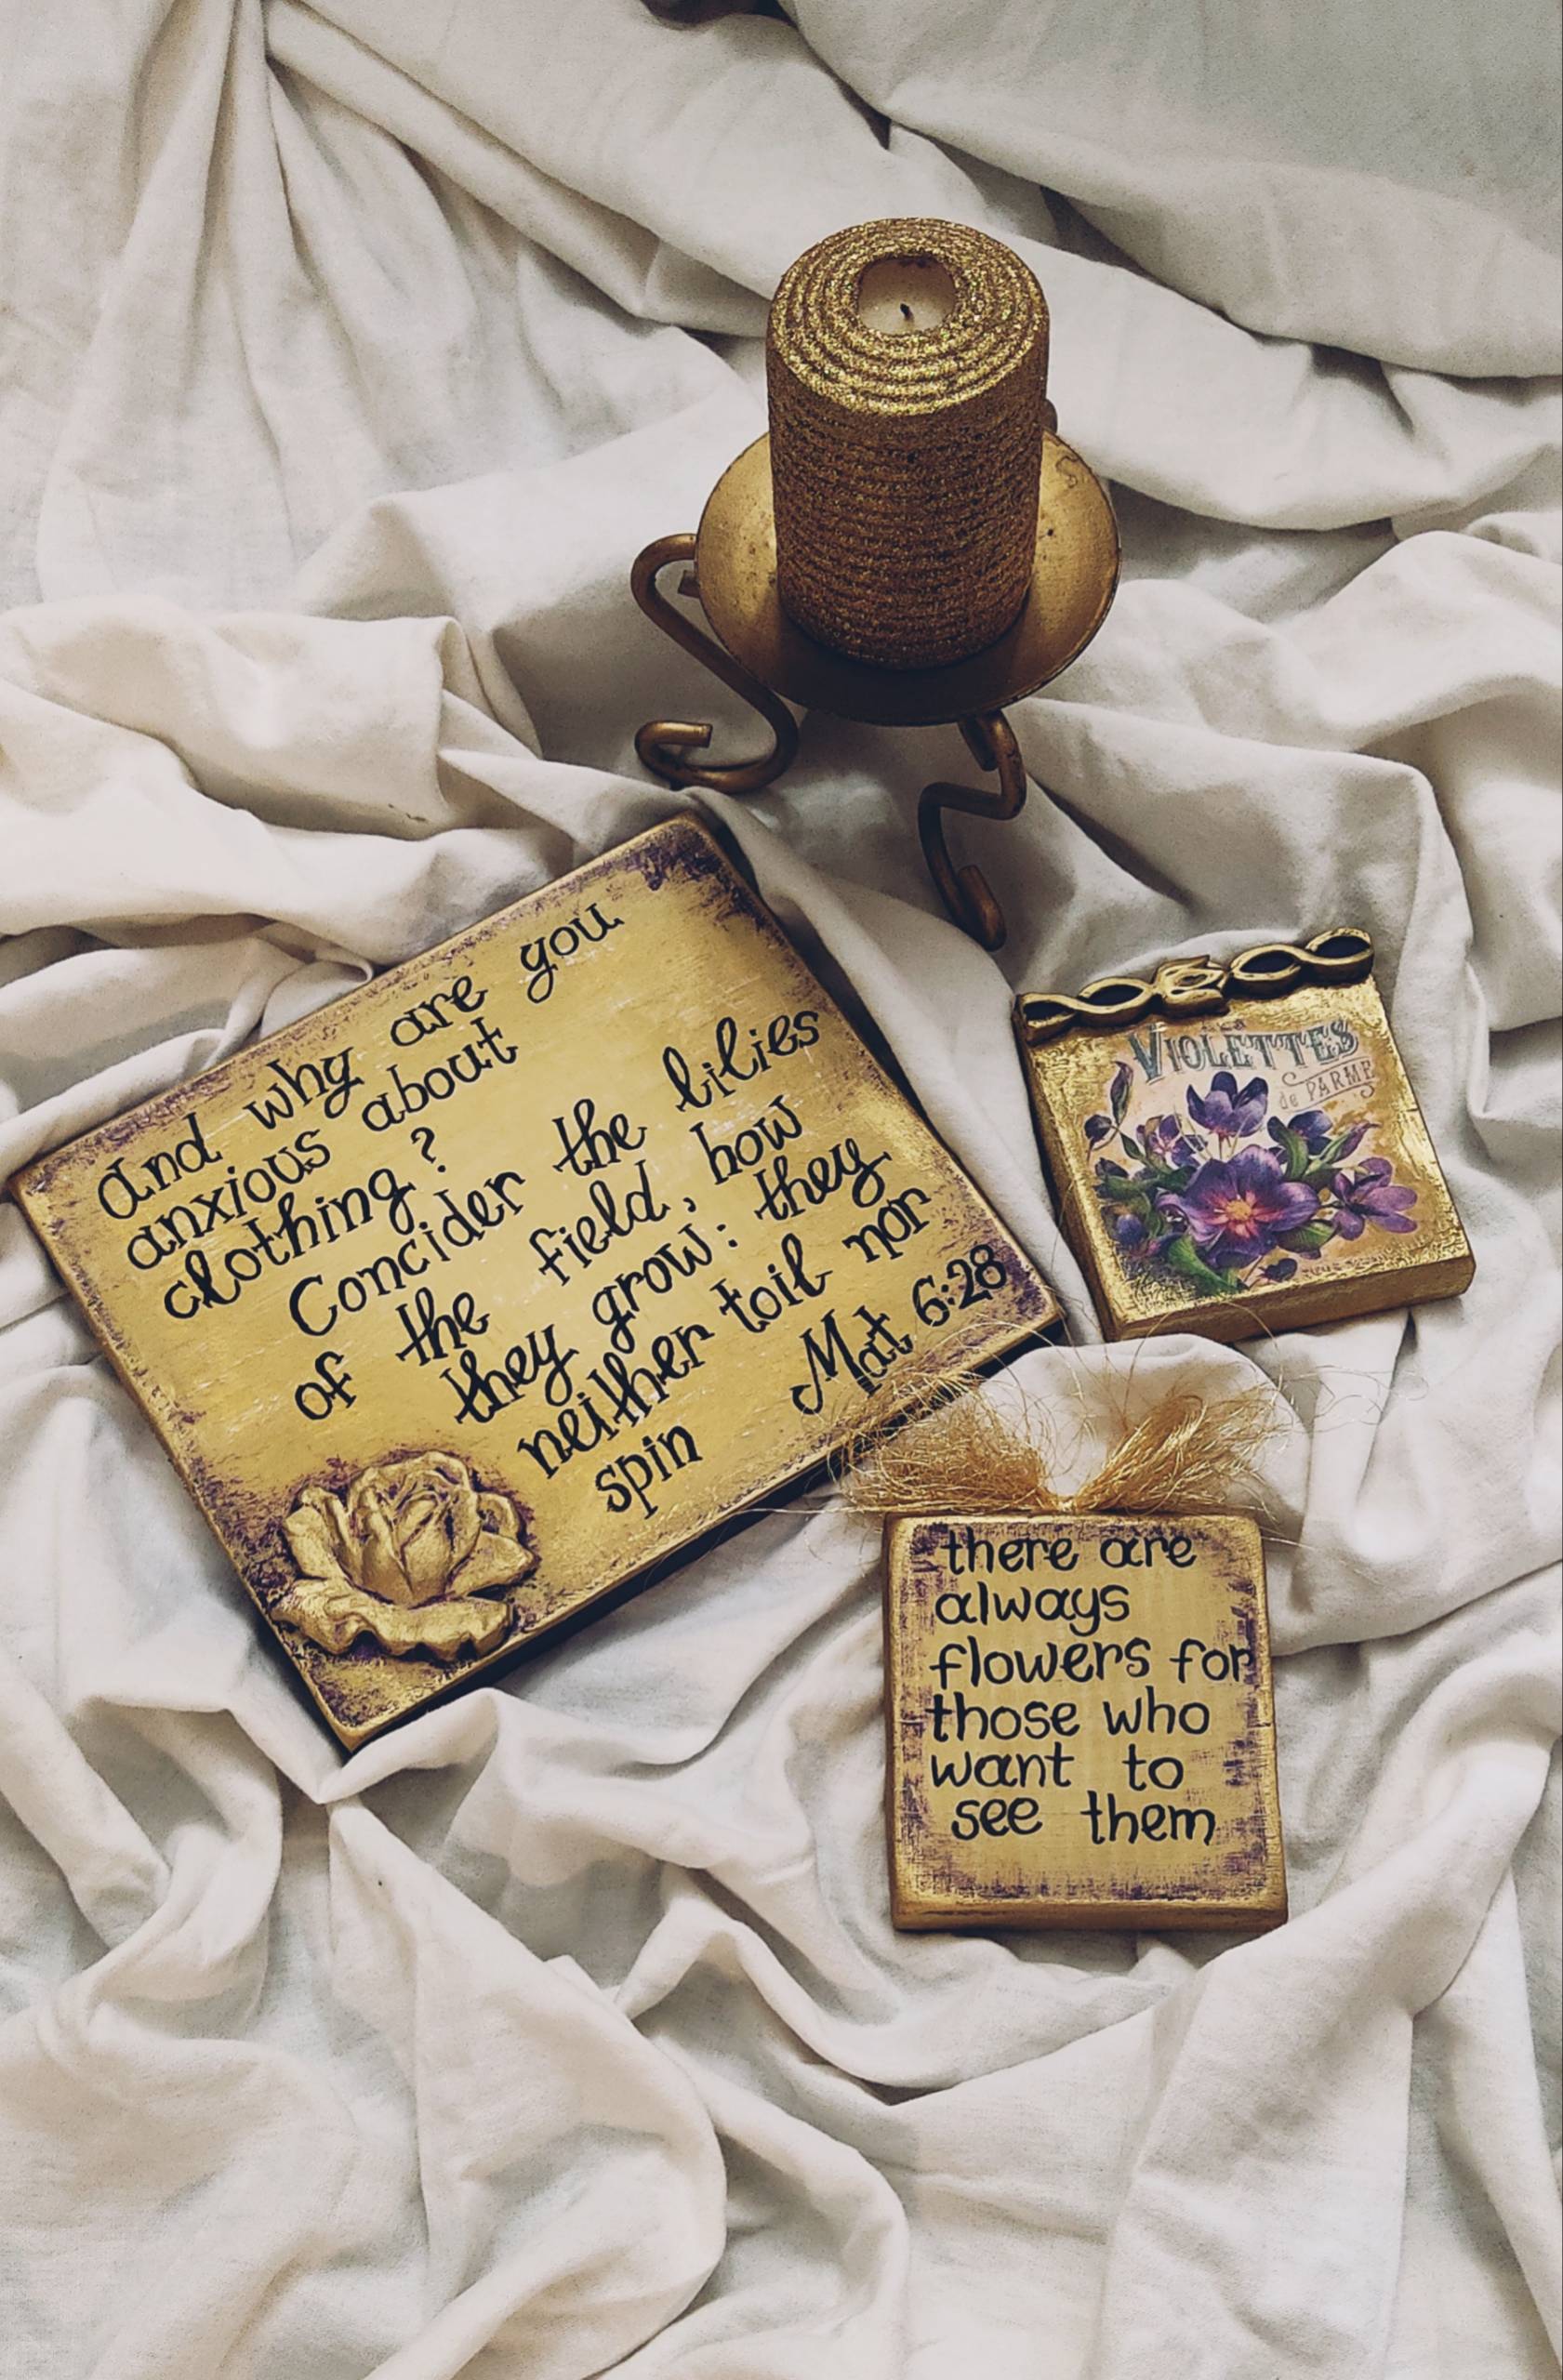 And why are you
anxious about
clothing?
Concider the lilies
of the field, how
they grow: they
neither toil nor
spin
Mat 6:28
VIOLETTES
de PARME
there are
always
flowers for
those who
want to
see them